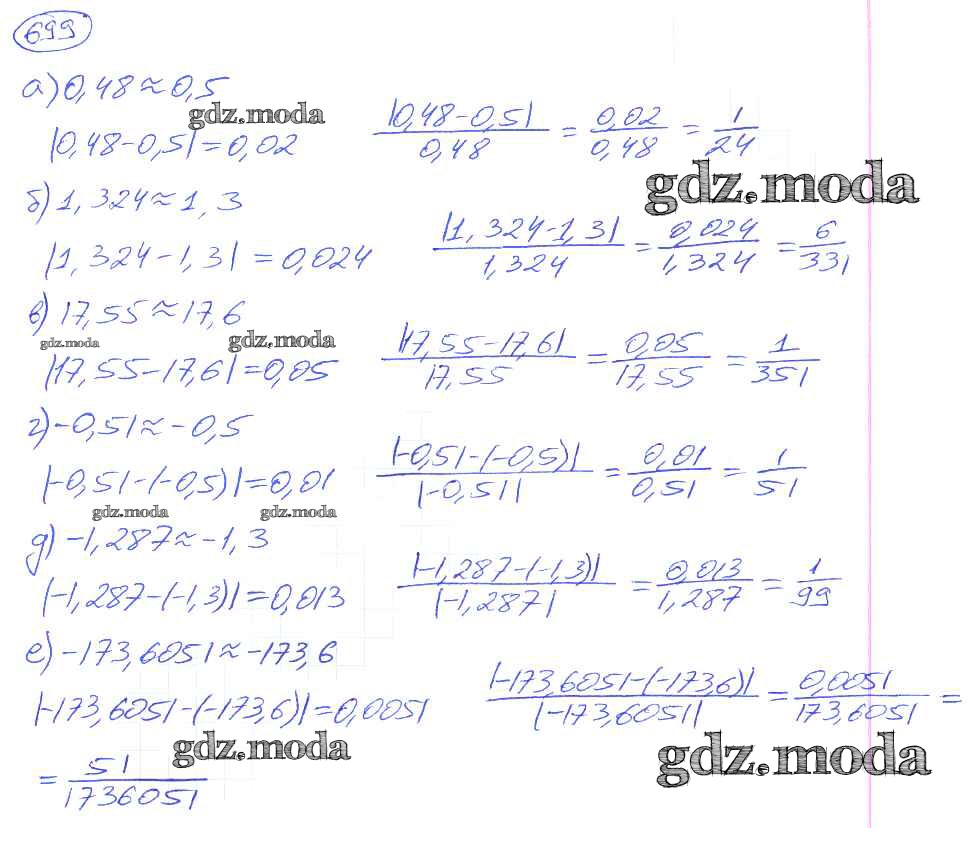 699
а) 0,48 ≈ 0,5
gdz.moda
|0,48-0,5| = 0,02    |0,48-0,5|/0,48 = 0,02/0,48 = 1/24
gdz.moda
б) 1,324 ≈ 1,3
|1,324-1,3| = 0,024    |1,324-1,3|/1,324 = 0,024/1,324 = 6/331
в) 17,55 ≈ 17,6
gdz.moda gdz.moda
|17,55-17,6| = 0,05    |17,55-17,6|/17,55 = 0,05/17,55 = 1/351
г) -0,51 ≈ -0,5
|-0,51-(-0,5)| = 0,01    |-0,51-(-0,5)|/|-0,51| = 0,01/0,51 = 1/51
gdz.moda gdz.moda
д) -1,287 ≈ -1,3
|-1,287-(-1,3)| = 0,013    |-1,287-(-1,3)|/|-1,287| = 0,013/1,287 = 1/99
е) -173,6051 ≈ -173,6
|-173,6051-(-173,6)| = 0,0051    |-173,6051-(-173,6)|/|-173,6051| = 0,0051/173,6051 =
gdz.moda gdz.moda
= 51/1736051